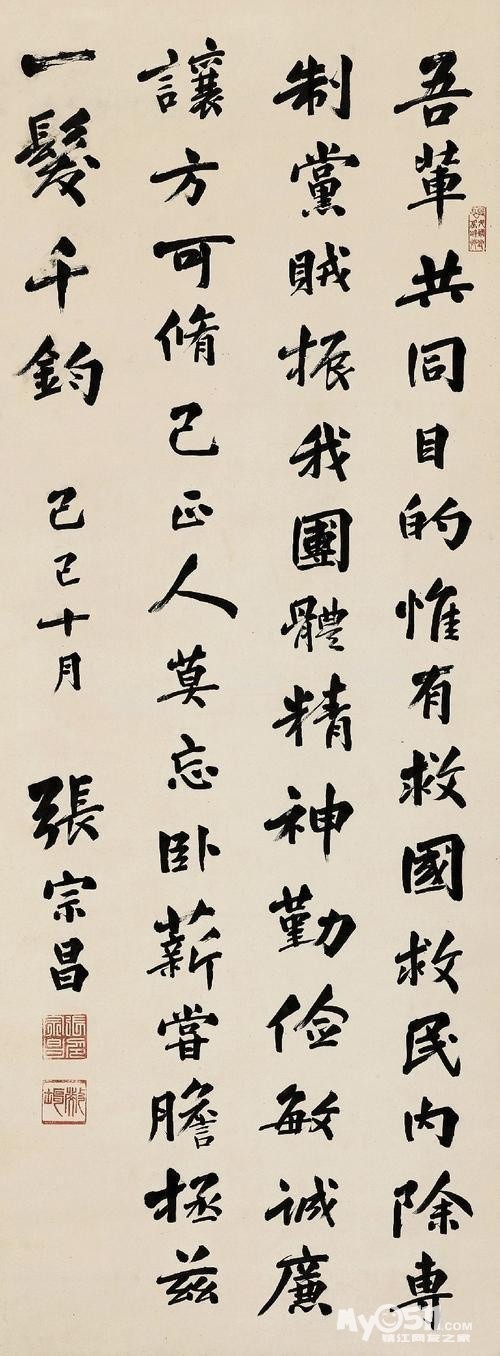 吾輩共同目的惟有救國救民内除専
制黨賊振我團體精神勤儉敏诚廉
讓方可脩己正人莫忘卧薪嘗膽拯兹
一髮千鈞
己巳十月
張宗昌
My0511.com
镇江网友之家